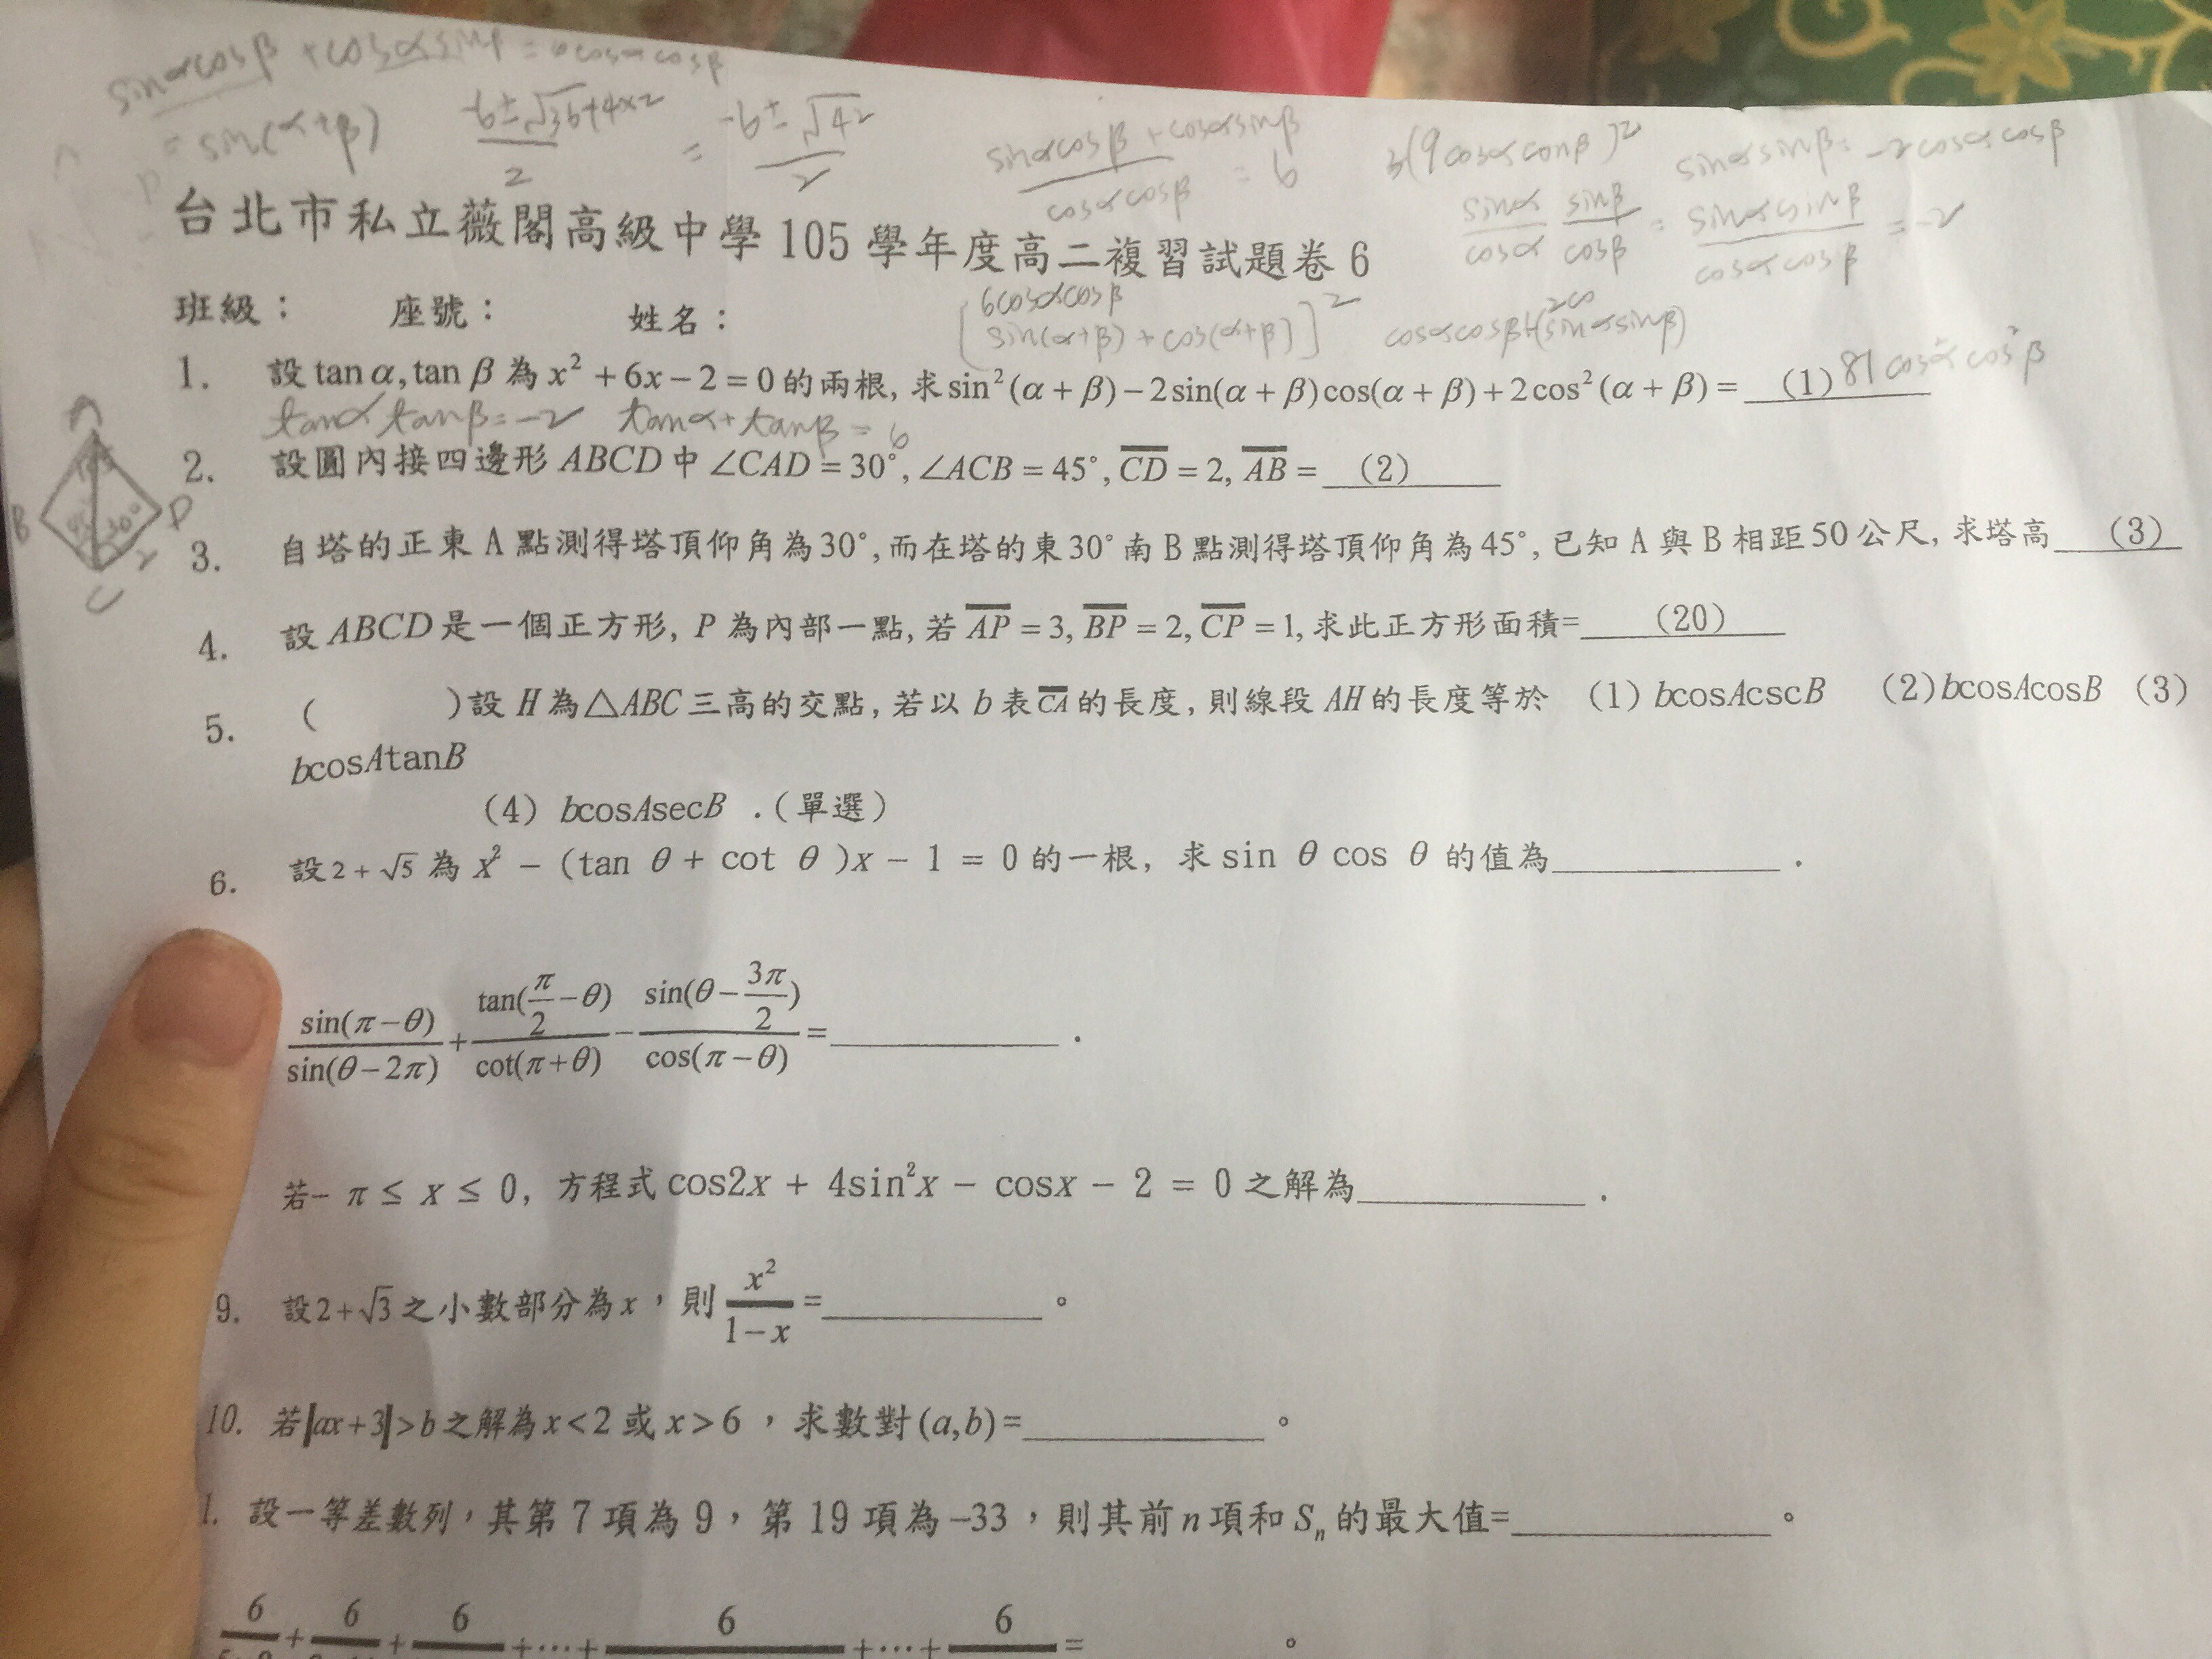 sinαcosβ + cosαsinβ = 6cosαcosβ
= sin(α+β)
-6±√36+4×2 / 2 = -6±√42 / 2
sinαcosβ + cosαsinβ / cosαcosβ = 6
3(9cosαcosβ)²
sinαsinβ = -2cosαcosβ
sinα/cosα sinβ/cosβ = sinαsinβ/cosαcosβ = -2
台北市私立薇閣高級中學 105 學年度高二複習試題卷 6
6cosαcosβ
[sin(α+β) + cos(α+β)]²
cosαcosβ+(sinαsinβ)
班級： 座號： 姓名：
1. 設 tan α, tan β 為 x² + 6x − 2 = 0 的兩根, 求 sin²(α + β) − 2sin(α + β)cos(α + β) + 2cos²(α + β) = (1) 81cos²αcos²β
tanαtanβ=-2 tanα+tanβ=6
2. 設圓內接四邊形 ABCD 中 ∠CAD = 30°, ∠ACB = 45°, CD = 2, AB = (2)
A
B
D
45 30°
2
C
3. 自塔的正東 A 點測得塔頂仰角為 30°, 而在塔的東 30° 南 B 點測得塔頂仰角為 45°, 已知 A 與 B 相距 50 公尺, 求塔高 (3)
4. 設 ABCD 是一個正方形, P 為內部一點, 若 AP = 3, BP = 2, CP = 1, 求此正方形面積= (20)
5. ( )設 H 為△ABC 三高的交點, 若以 b 表 CA 的長度, 則線段 AH 的長度等於 (1) bcosAcscB (2) bcosAcosB (3)
bcosAtanB
(4) bcosAsecB .(單選)
6. 設 2 + √5 為 x² − (tan θ + cot θ )x − 1 = 0 的一根, 求 sin θ cos θ 的值為 .
sin(π−θ)/sin(θ−2π) + tan(π/2−θ)/cot(π+θ) − sin(θ−3π/2)/cos(π−θ) = .
若− π ≤ x ≤ 0, 方程式 cos2x + 4sin²x − cosx − 2 = 0 之解為 .
9. 設 2+√3 之小數部分為 x，則 x²/1−x = 。
10. 若|ax+3|>b 之解為 x<2 或 x>6，求數對(a,b)= 。
1. 設一等差數列，其第 7 項為 9，第 19 項為 −33，則其前 n 項和 Sₙ 的最大值= 。
6 + 6 + 6 +⋯+ 6 +⋯+ 6 = 。